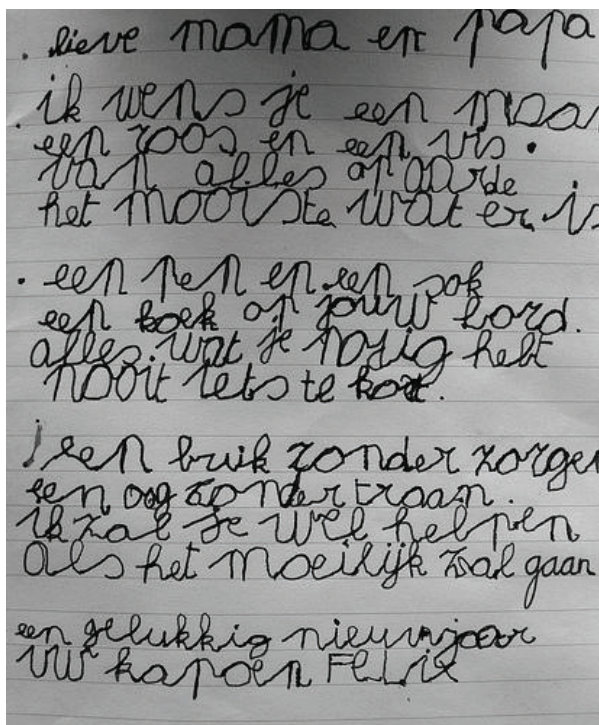 . lieve mama en papa
. ik wens je een maan
een roos en een vis .
van alles op aarde
het mooiste wat er is
. een pen en een sok
een koek op jouw bord.
alles wat je nozig hebt
nooit iets te kort.
een buik zonder zorgen
een oog zonder traan.
ik zal je wel helpen
als het moeilijk zal gaan
een gelukkig nieuwjaar
uw kapoen FELIX